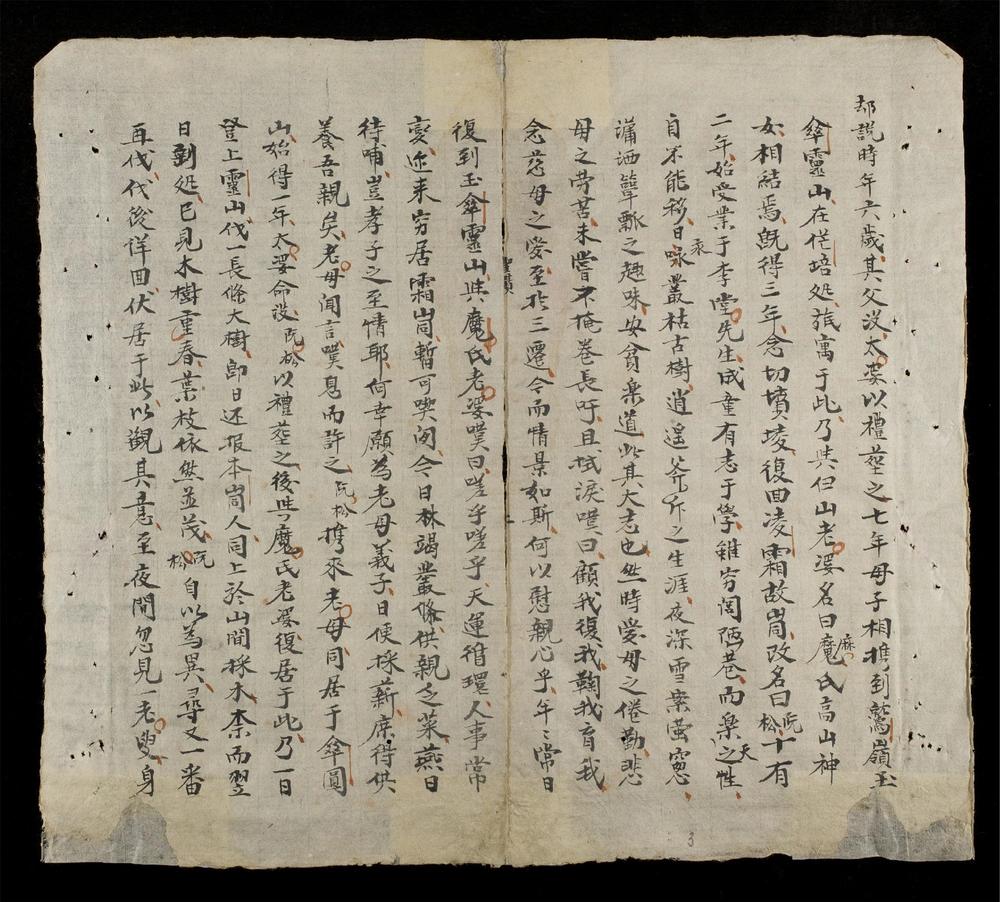 却說時年六歲其父沒太婆以禮塟之七年母子相携到鷲嶺玉
傘靈山在俇培処旅寓于此乃與伹山老婆名曰魔氏高山神
麻
女相結焉旣得三年念切墳墓復回凌霜故峝改名曰阮松十有
二年始受業于李堂先生成童有志于學雖窮閻陋巷而樂之性
天
自不能移日咏叢枯古樹逍遥斧斤之生涯夜深雪案萤窓
瀟洒簞瓢之趣味安貧樂道此其大志也然時愛母之倦勤悲
母之劳苦未嘗不掩卷長吁且拭淚嘆曰顧我復我鞠我育我
念慈母之愛至扵三遷今而情景如斯何以慰親心乎年〻常日
復到玉傘靈山與魔氏老婆嘆曰嗟乎嗟乎天運循環人事常
變迩来穷居霜峝暫可喫河今日林竭叢條供親乏菜燕日
待哺豈孝子之至情耶何幸願為老母義子日使採薪庶得供
養吾親矣老母闻言嘆息而許之阮松携來老母同居于傘圓
山始得一年太婆命沒阮松以禮塟之後與魔氏老婆復居于此乃一日
登上靈山伐一長條大樹即日还报本峝人同上於山間採木柰而翌
日到処已見木樹重春葉枝依然並茂阮松自以為異尋又一番
再伐伐後详回伏居于此以觀其意至夜間忽見一老叟身
3